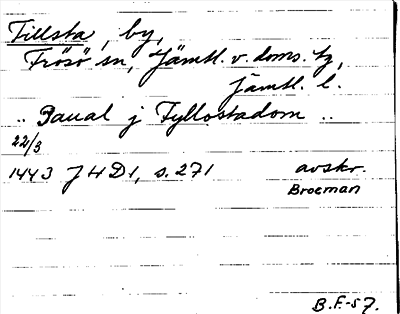 Tillsta, by,
Frösö sn, Jämtl. v. doms. tg,
Jämtl. l.
.. Paual j Fyllostadom ..
22/3
1443 JHD1, s. 271 avskr.
Broeman
B.F.-57.